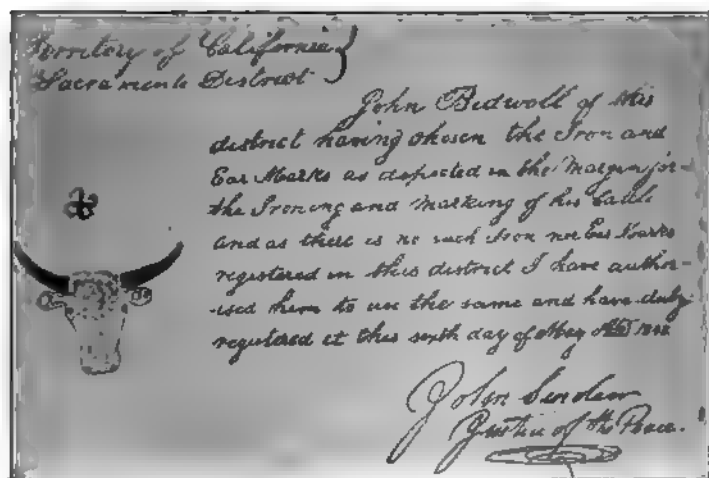 Territory of California
Sacramento District
John Bidwell of this
district having chosen the Iron and
Ear Marks as depicted in the Margin for
the Ironing and Marking of his Cattle
and as there is no such Iron nor Ear Marks
registered in this district I have author-
ised him to use the same and have duly
registered it this sixth day of May
John
Justice of the Peace.